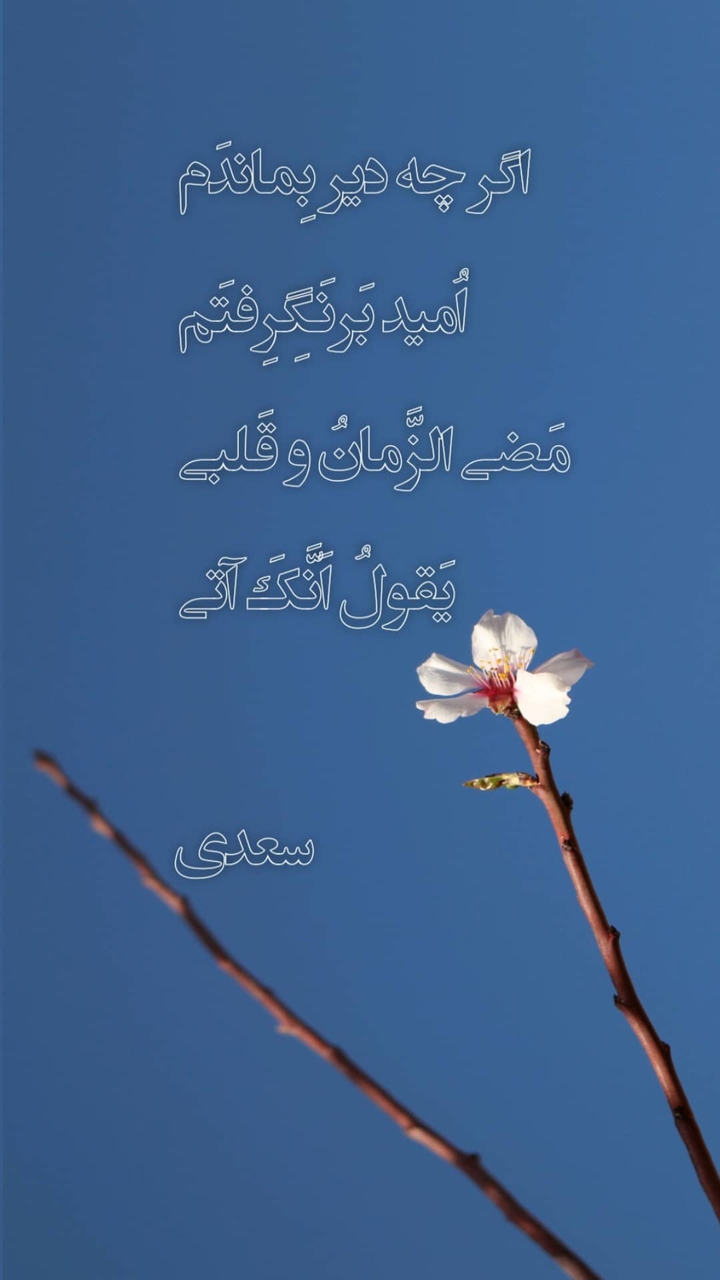 اگر چه دیر بِماندَم
اُمید بَرنَگِرِفتَم
مَضے الزَّمانُ و قَلبے
یَقولُ اَنَّکَ آتے
سعدی